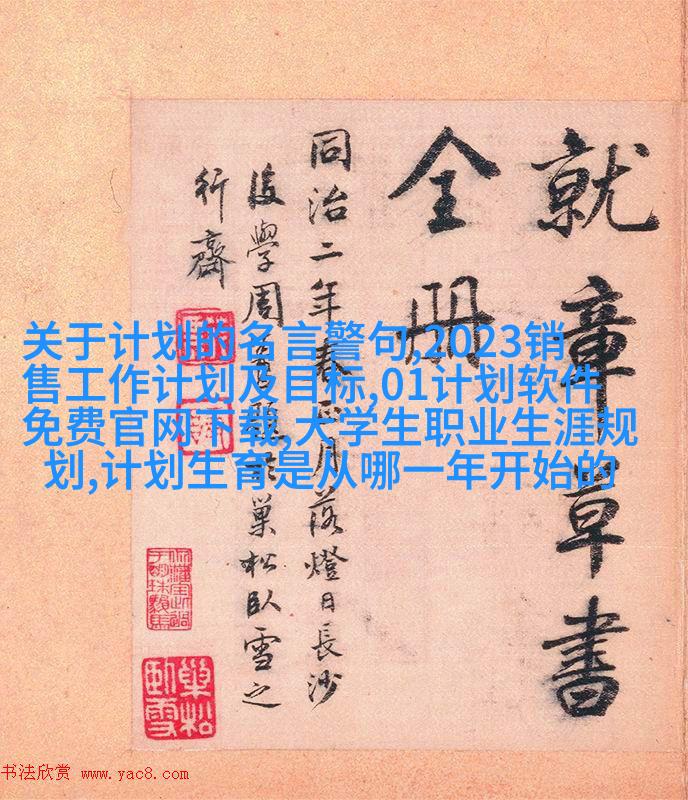 就章草書
全冊
同治二年春正月落燈日長沙
後學周於巢松臥雪之
行齋
巢松臥雪
关于计划的名言警句,2023销
售工作计划及目标,01计划软件
免费官网下载,大学生职业生涯规
划,计划生育是从哪一年开始的
书法欣赏 www.yac8.com